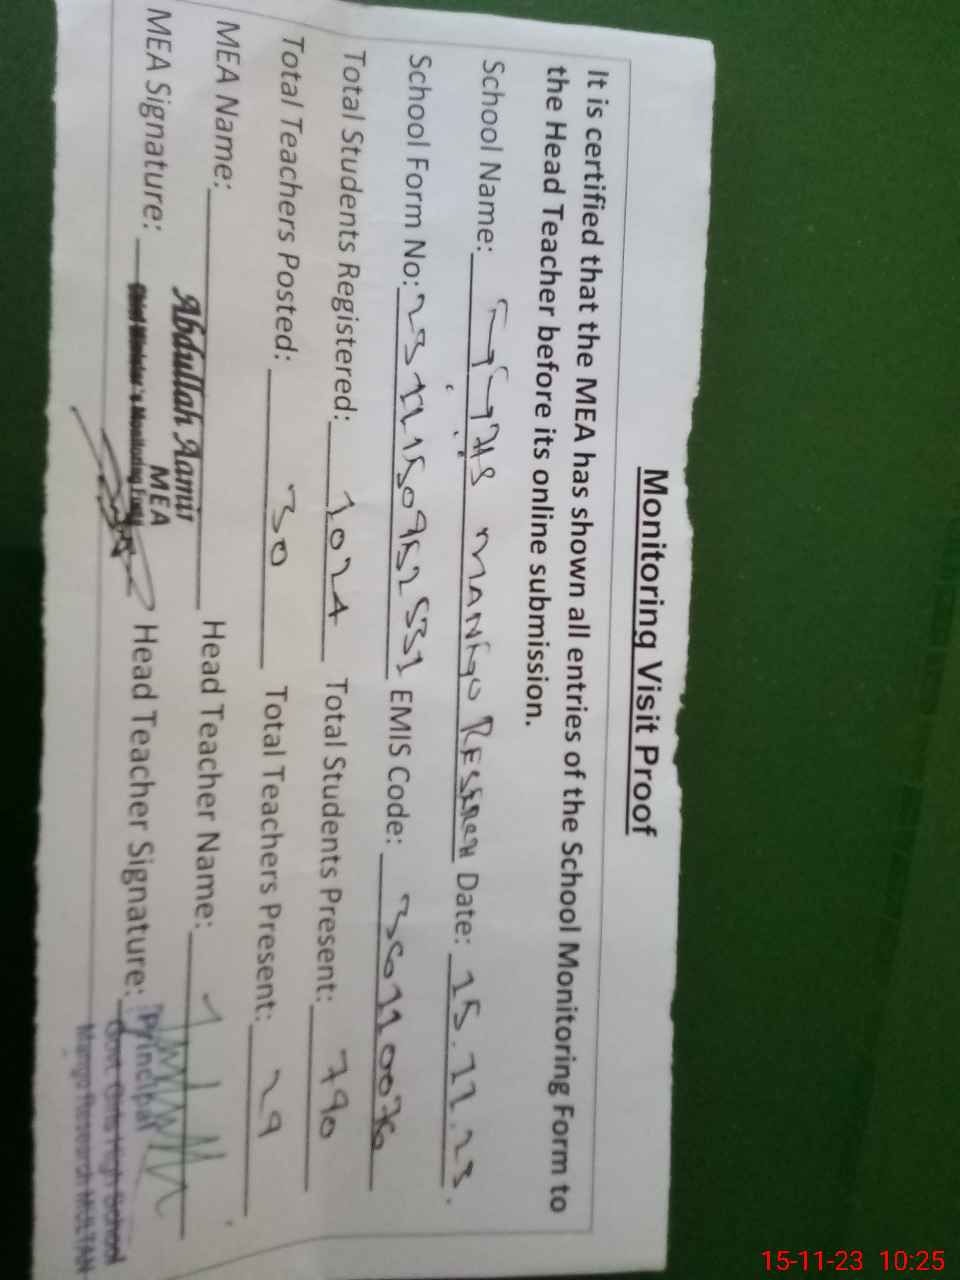 Monitoring Visit Proof
It is certified that the MEA has shown all entries of the School Monitoring Form to
the Head Teacher before its online submission.
School Name: MANGO Date: 15.11.23.
School Form No: EMIS Code:
Total Students Registered: 1024 Total Students Present: 790
Total Teachers Posted: 30 Total Teachers Present: 29
MEA Name: Abdullah Aamir Head Teacher Name:
MEA
MEA Signature: Chief Minister's Monitoring Force Head Teacher Signature:
Principal
Govt. Girls High School
Mango Research MULTAN
15-11-23 10:25